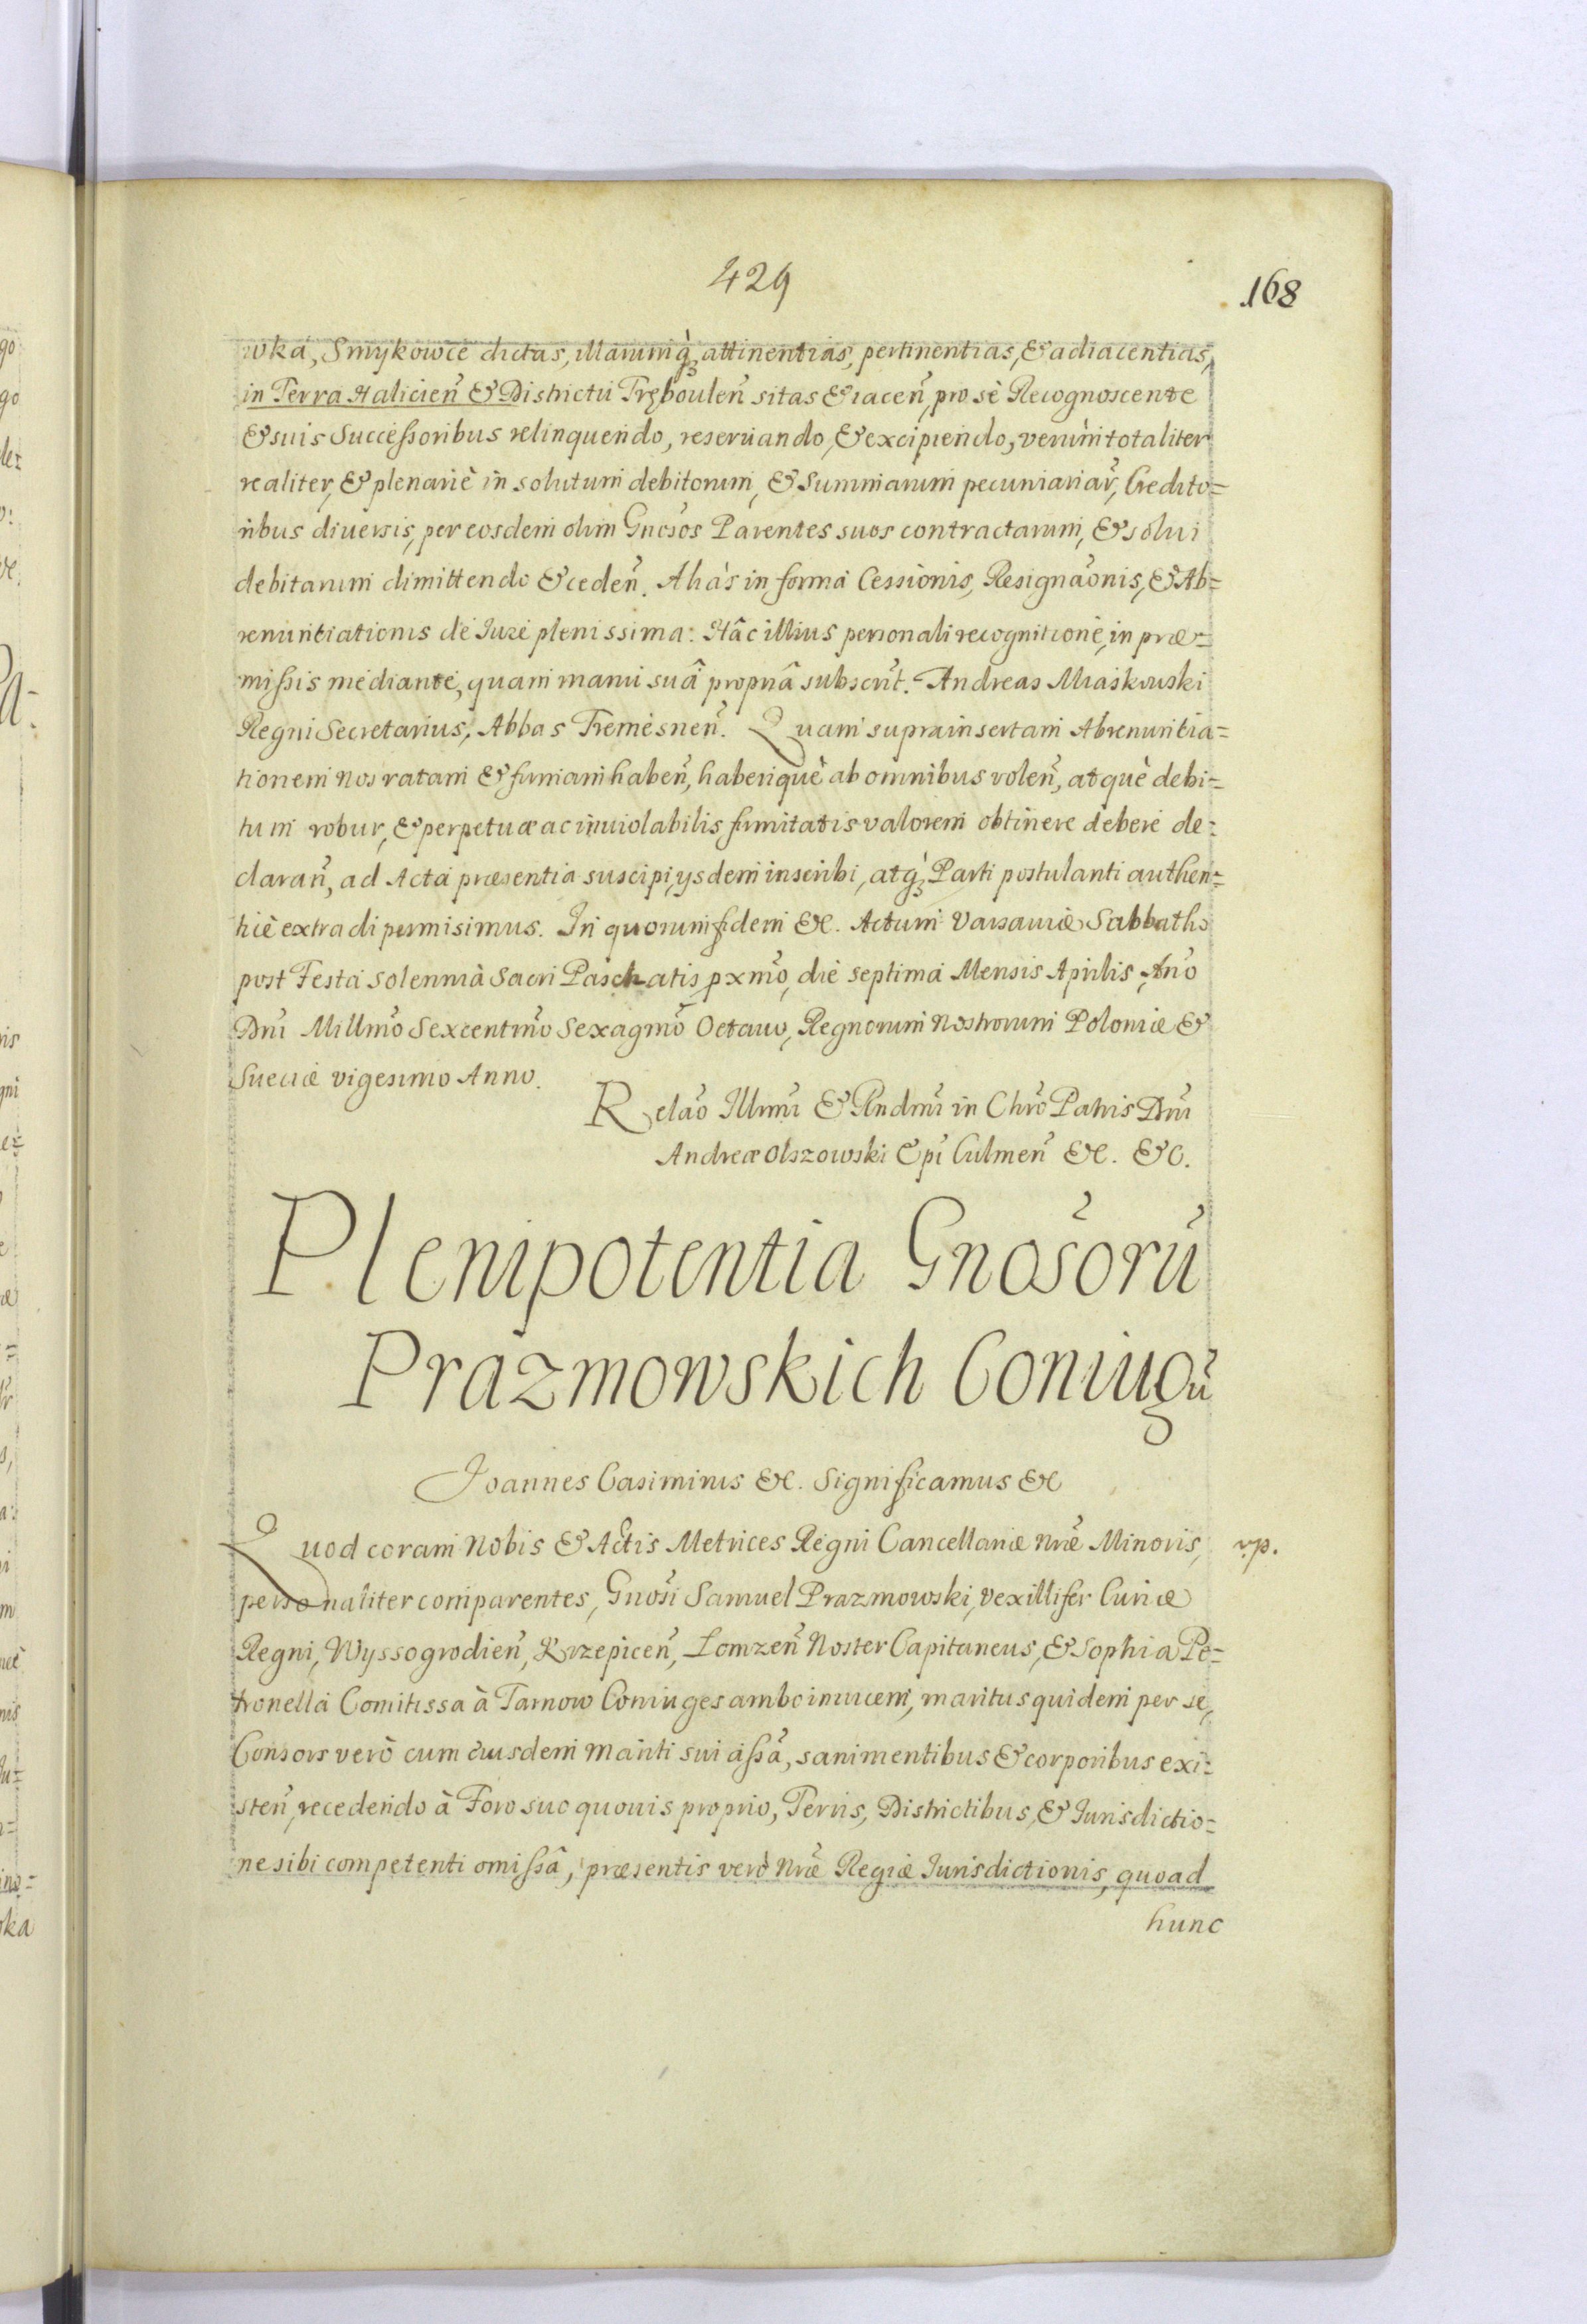 429
168
wka, Smykowce dictas, illarumq̀ʒ attinentias, pertinentias, & adiacentias,
in Terra Halicień & Districtu Tręboulen̄ sitas & iacen̄, pro se Recognoscente
& suis Successoribus relinquendo, reseruando, & excipiendo, verùm totaliter
realiter, & plenariè in solutum debitorum, & Summarum pecuniariar̄, Credito=
ribus diuersis, per eosdem olim Gnosos Parentes suos contractarum, & solui
debitarum dimittendo & ceden̄. Aliàs in forma Cessionis, Resignãonis, & Ab=
renuntiationis de Iure plenissima: Hâc illius personali recognitione, in præ=
missis mediante, quam manu suâ propriâ subscrit̃. Andreas Miaskowski
Regni Secretarius, Abbas Tremesnen̄. Quam suprainsertam Abrenuntia=
tionem Nos ratam & firmam haben̄, haberiquè ab omnibus volen̄, atquè debi=
tum robur, & perpetuæ ac inuiolabilis firmitatis valorem obtinere debere de=
claran̄, ad Acta præsentia suscipi, ysdem inscribi, atq̀ʒ Parti postulanti authen=
ticè extradi permisimus. In quorum fidem &c. Actum Varsauiæ Sabbatho
post Festa solennia Sacri Paschatis pxmõ, die septima Mensis Aprilis, Anõ
Dni Millmõ Sexcentmõ Sexagmõ Octauo, Regnorum Nostrorum Poloniæ &
Sueciæ vigesimo Anno.
Relaõ Illmi & Rndmi in Chrõ Patris Dni
Andreæ Olszowski Epi Culmen̄ &c. &c.
Plenipotentia Gnosorũ
Prazmowskich Coniugũ
Joannes Casimirus &c. Significamus &c
Quod coram Nobis & Actis Metrices Regni Cancellariæ Nræ Minoris,
vp.
personaliter comparentes, Gnosi Samuel Prazmowski, Vexillifer Curiæ
Regni, Wyssogrodien̄, Krzepicen̄, Lomzen̄ Noster Capitaneus, & Sophia Pe=
tronella Comitissa à Tarnow Coniuges ambo inuicem, maritus quidem per se,
Consors verò cum eiusdem Mariti sui assã, sani mentibus & corporibus exi=
sten̄, recedendo à Foro suo quouis proprio, Terris, Districtibus, & Iurisdictio=
ne sibi competenti omissâ, præsentis verò Nræ Regiæ Iurisdictionis, quoad
hunc